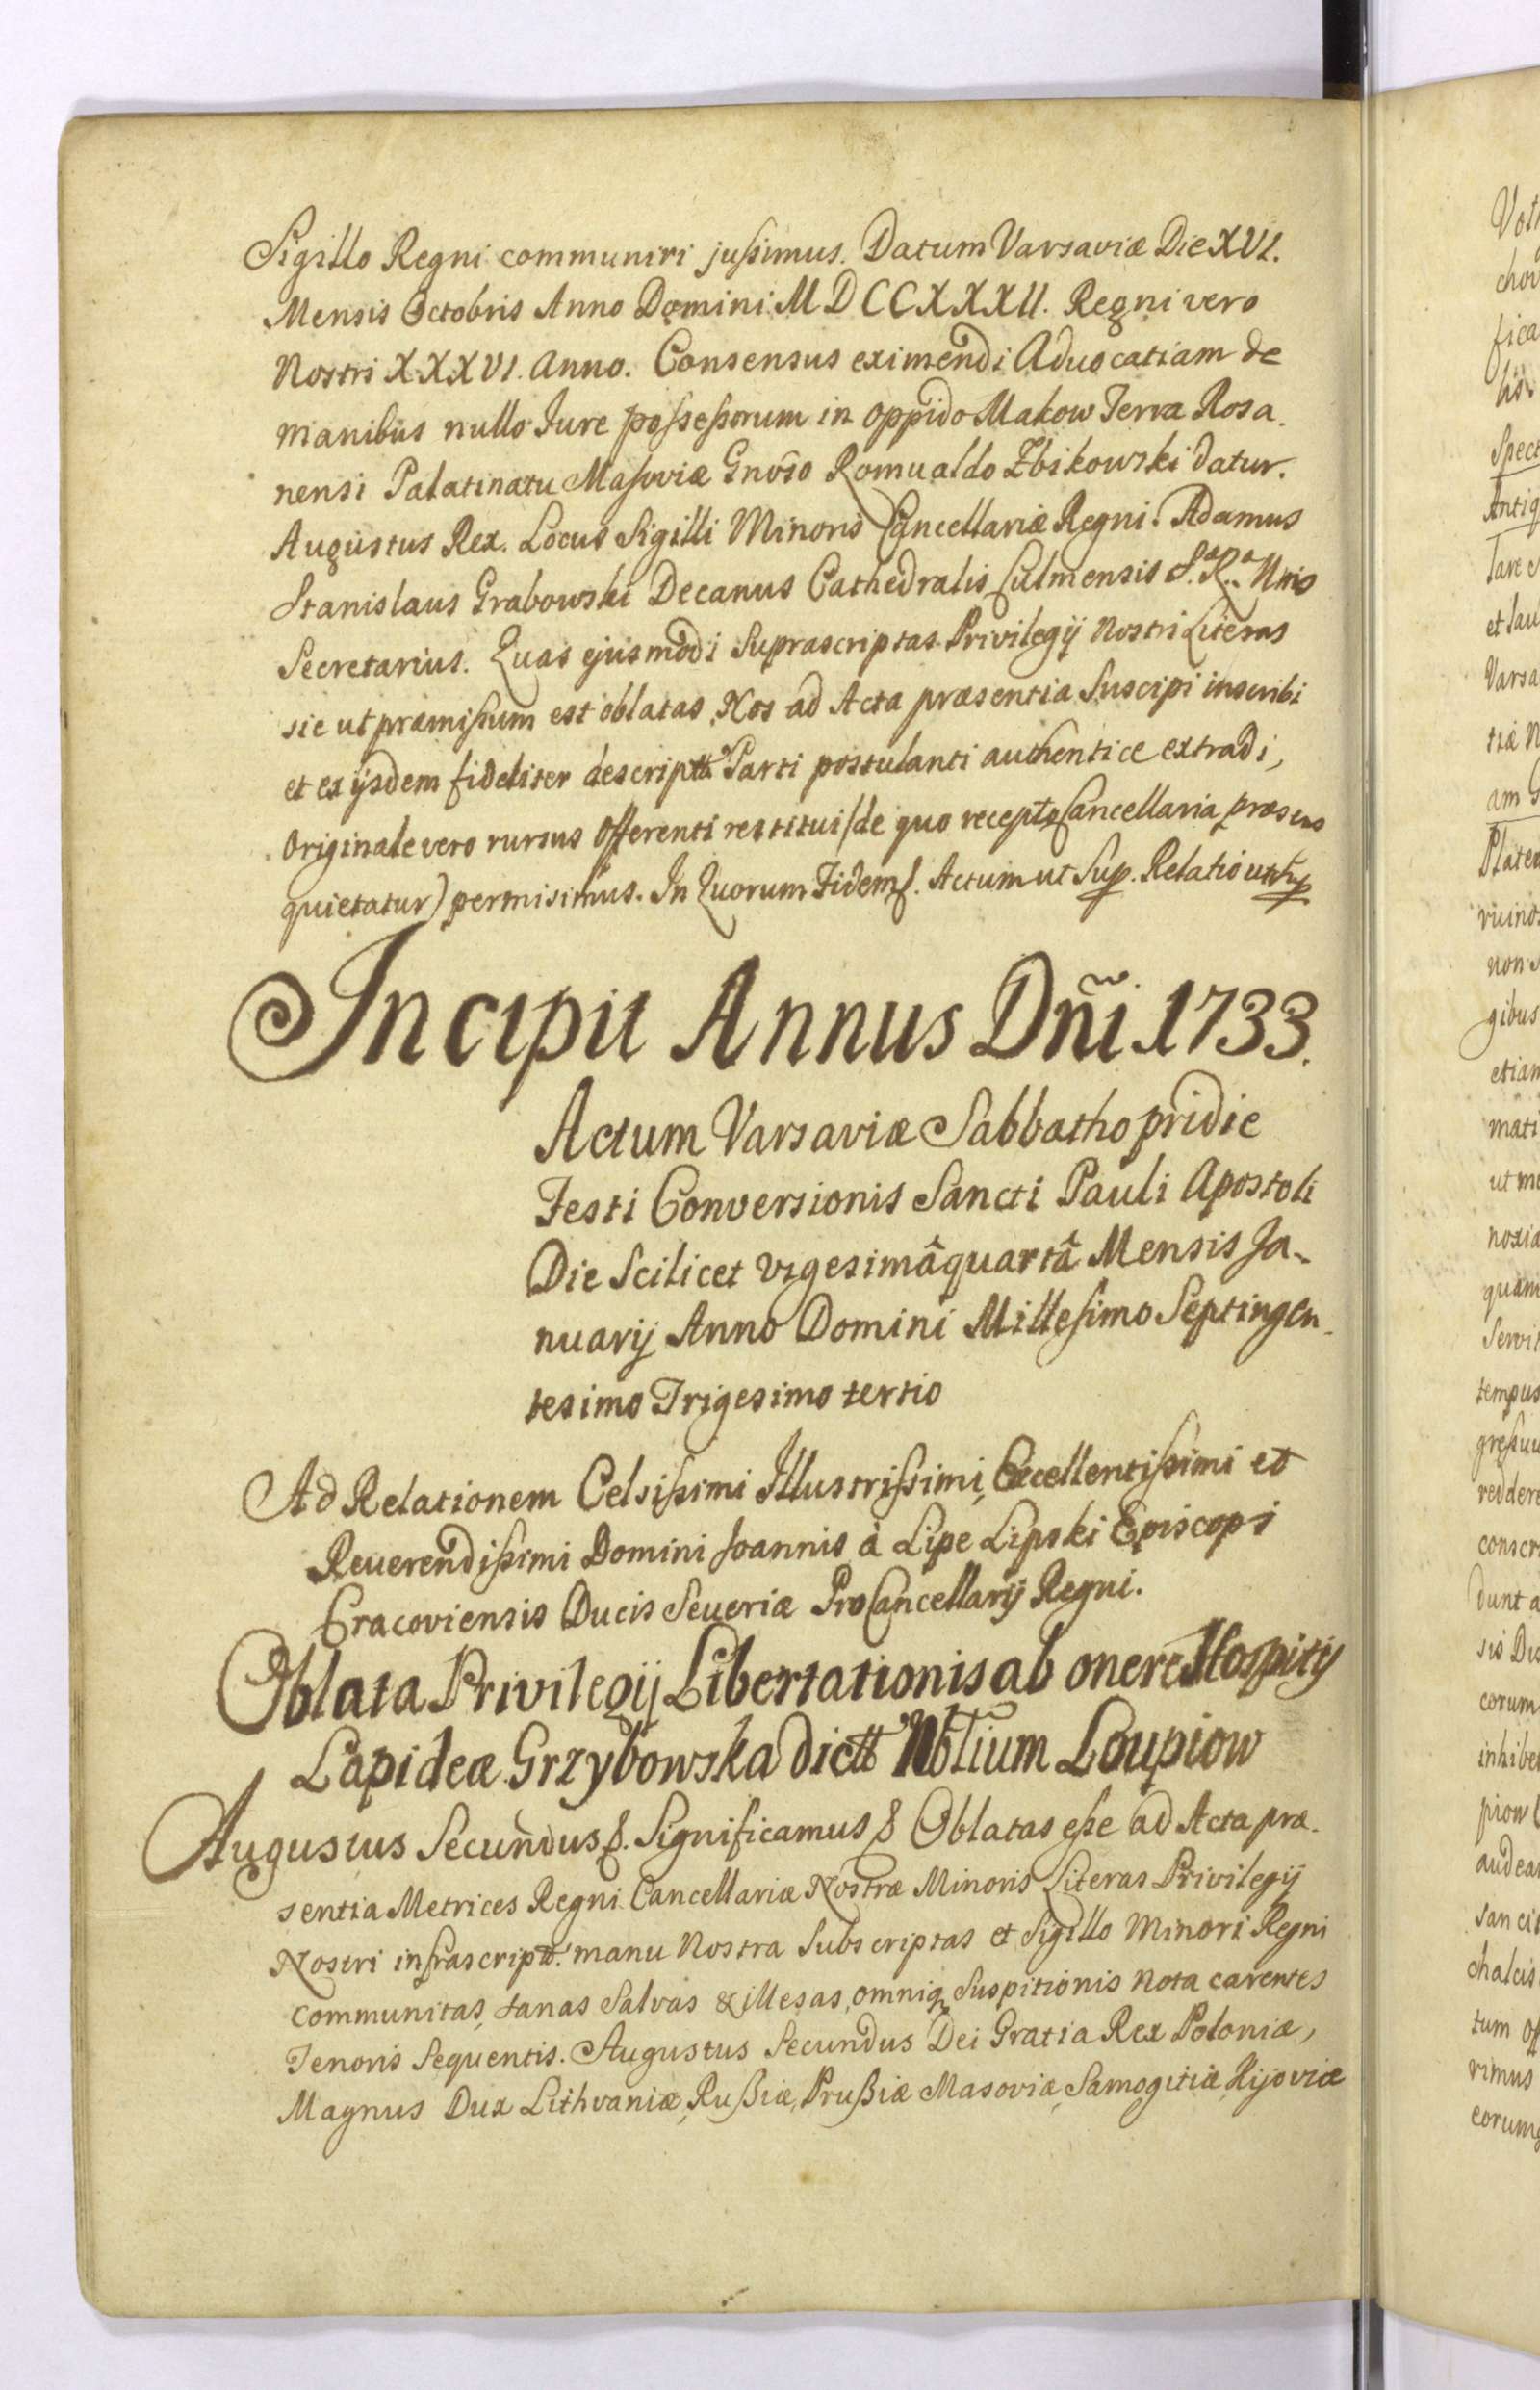 Sigillo Regni communiri jussimus. Datum Varsaviæ Die XVI.
Mensis Octobris Anno Domini MDCCXXXII. Regni vero
Nostri XXXVI. Anno. Consensus eximendi Aduocatiam de
manibus nullo Jure possessorum in oppido Makow Terræ Rosa
nensi Palatinatu Masoviæ Gnoso Romualdo Zbikowski datur.
Augustus Rex. Locus Sigilli Minoris Cancellariæ Regni. Adamus
Stanislaus Grabowski Decanus Cathedralis Culmensis S.ª R.ª Mtis
Secretarius. Quas ejusmodi Suprascriptas Privilegij Nostri Literas
sic ut præmissum est oblatas, Nos ad Acta præsentia Suscipi inscribi
et ex ijsdem fideliter descriptt Parti postulanti authentice extradi,
Originale vero rursus Offerenti restitui (de quo recepto Cancellaria præsens
quietatur) permisimus. In Quorum Fidem &. Actum ut Sup. Relatio ut Sup
Incipit Annus Dñi 1733.
Actum Varsaviæ Sabbatho pridie
Festi Conversionis Sancti Pauli Apostoli
Die Scilicet vigesimâquartâ Mensis Ja-
nuarij Anno Domini Millesimo Septingen-
tesimo Trigesimo tertio
Ad Relationem Celsissimi Illustrissimi, Excellentissimi et
Reuerendissimi Domini Joannis à Lipe Lipski Episcopi
Cracoviensis Ducis Seueriæ ProCancellarij Regni.
Oblata Privilegij Libertationis ab onere Hospitij
Lapideæ Grzybowska dictt Nbtium Loupiow
Augustus Secundus &. Significamus & Oblatas esse ad Acta præ-
sentia Metrices Regni Cancellariæ Nostræ Minoris Literas Privilegij
Nostri infrascriptt. manu Nostra Subscriptas et Sigillo Minori Regni
communitas, sanas Salvas & illesas, omniq Suspitionis nota carentes
Tenoris Sequentis. Augustus Secundus Dei Gratia Rex Poloniæ,
Magnus Dux Lithvaniæ, Rußiæ, Prußiæ Masoviæ, Samogitiæ, Kijoviæ